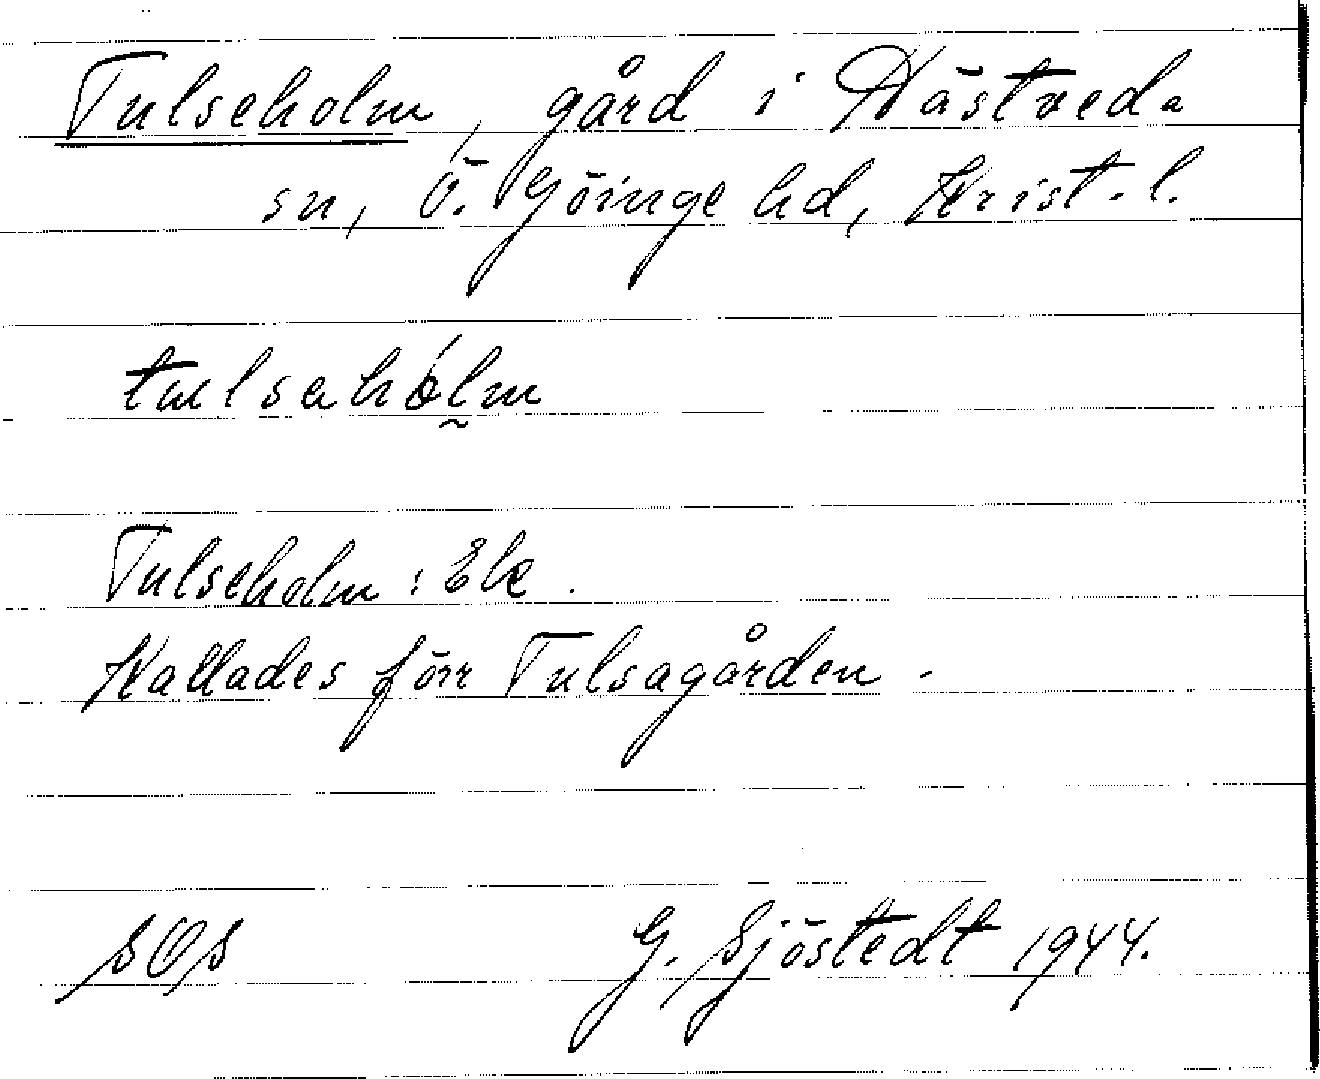 Tulseholm, gård i Hästveda
sn, Ö. Göinge hd, Krist. l.
tulsahólm
Tulseholm: Ek.
Kallades förr Tulsagården.
SOS G. Sjöstedt 1944.